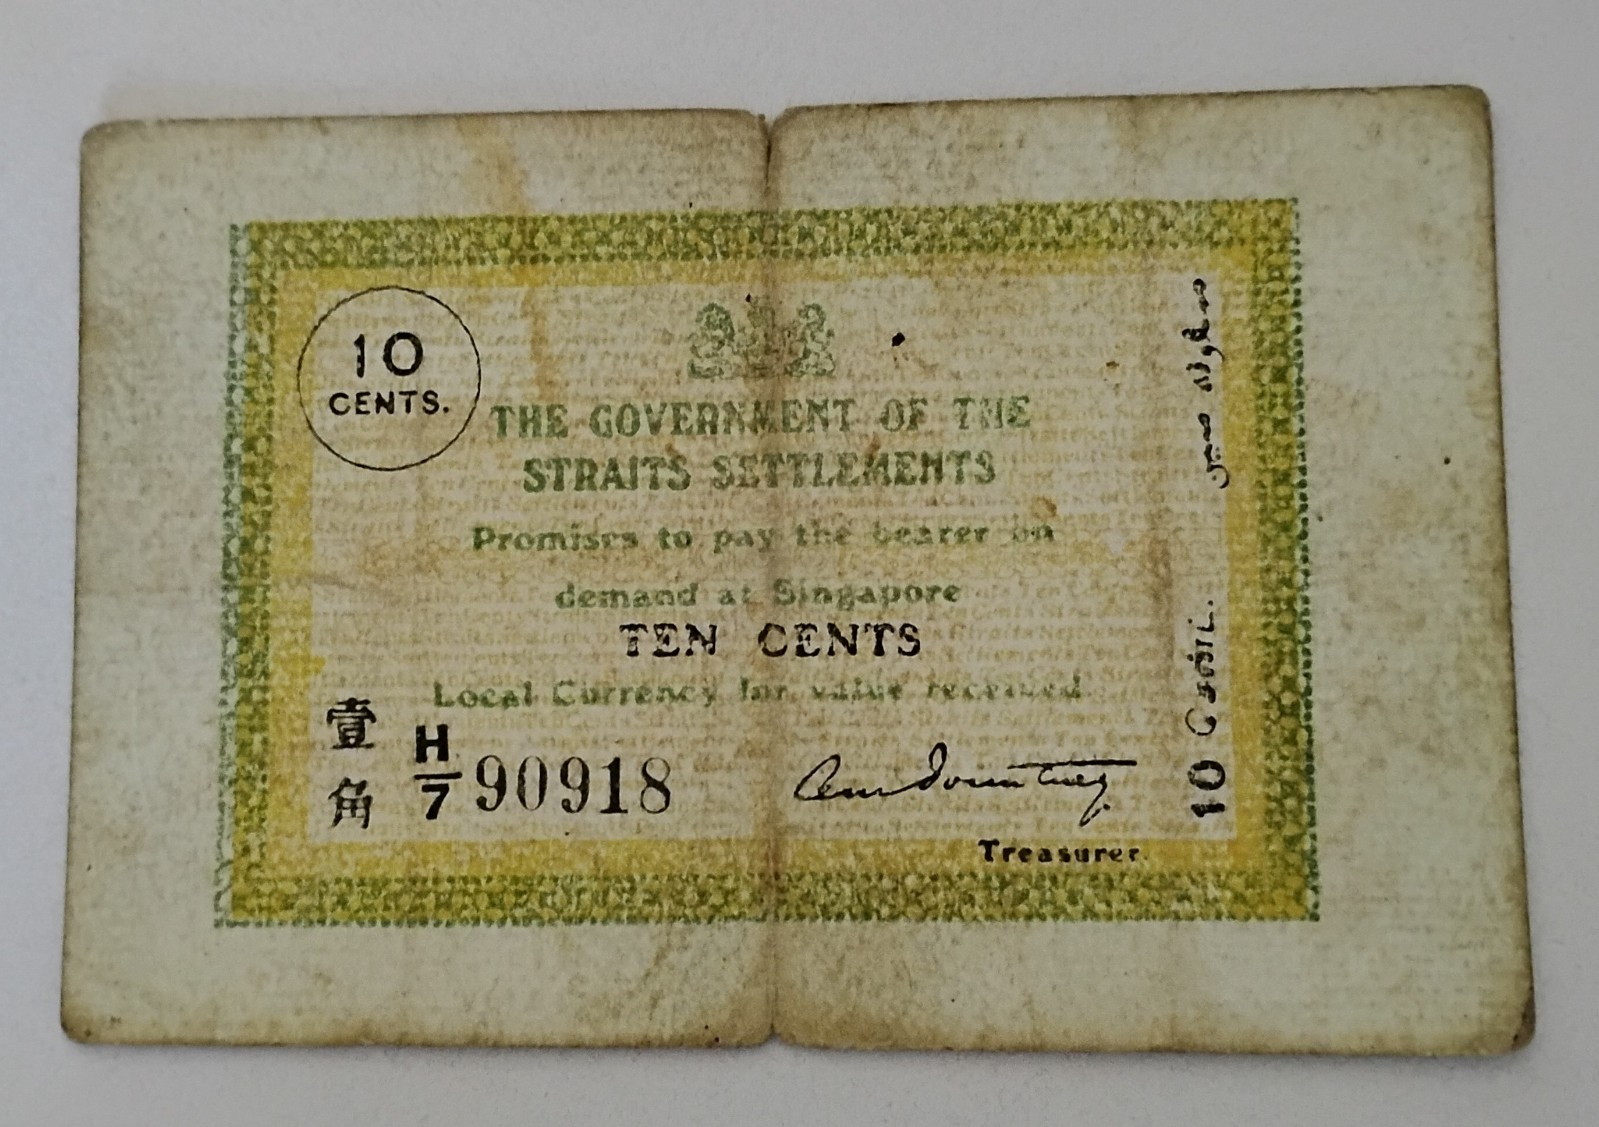 10
CENTS.
THE GOVERNMENT OF THE
STRAITS SETTLEMENTS
Promises to pay the bearer on
demand at Singapore
TEN CENTS
Local Currency for value received
壹
角
H/7 90918
Treasurer.
10